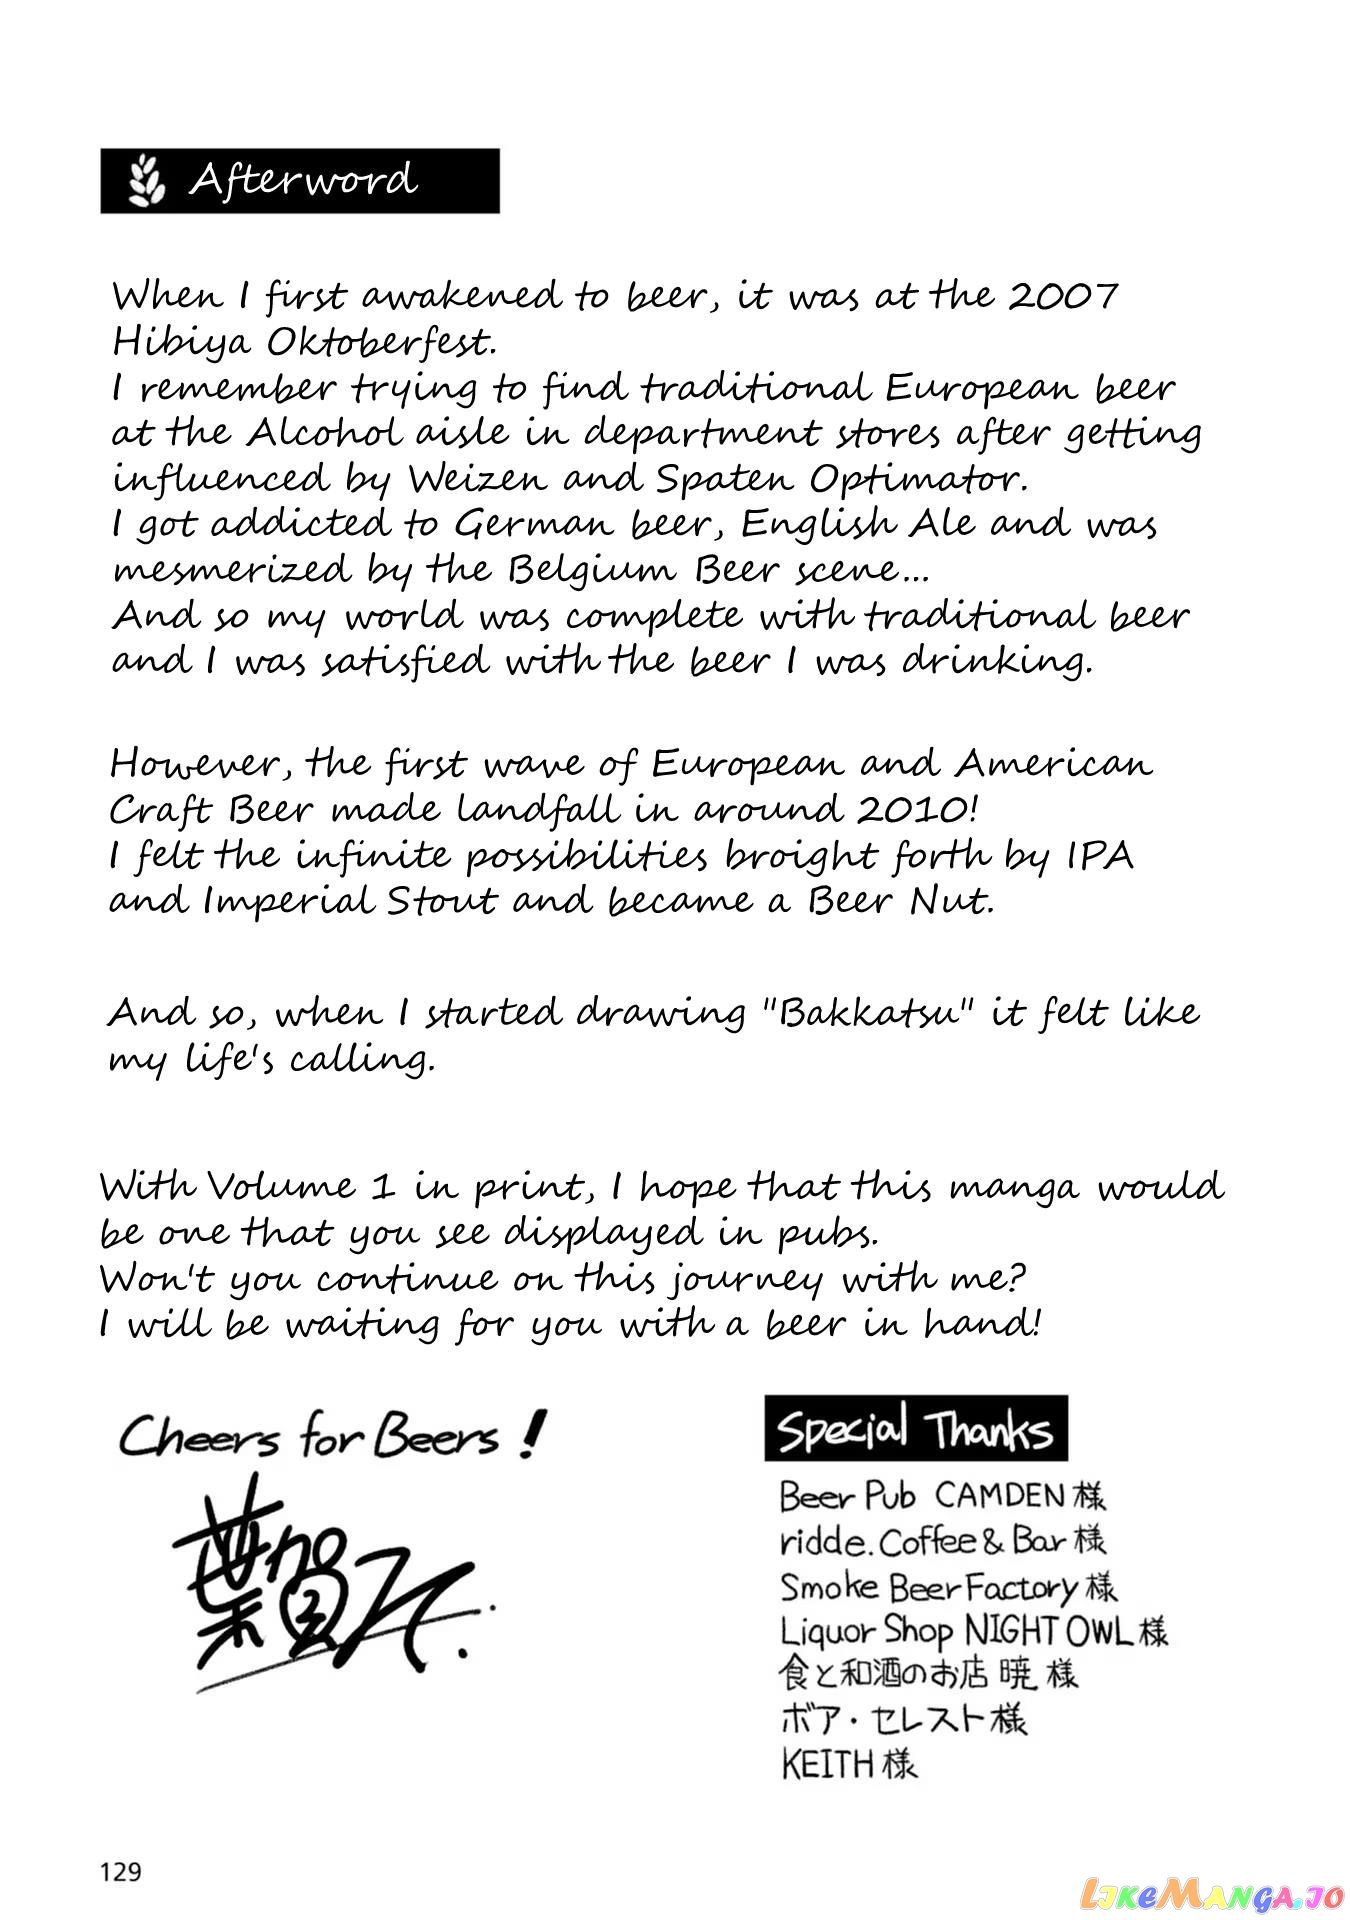 Afterword
When I first awakened to beer, it was at the 2007
Hibiya Oktoberfest.
I remember trying to find traditional European beer
at the Alcohol aisle in department stores after getting
influenced by Weizen and Spaten Optimator.
I got addicted to German beer, English Ale and was
mesmerized by the Belgium Beer scene...
And so my world was complete with traditional beer
and I was satisfied with the beer I was drinking.
However, the first wave of European and American
Craft Beer made landfall in around 2010!
I felt the infinite possibilities broight forth by IPA
and Imperial Stout and became a Beer Nut.
And so, when I started drawing "Bakkatsu" it felt like
my life's calling.
With Volume 1 in print, I hope that this manga would
be one that you see displayed in pubs.
Won't you continue on this journey with me?
I will be waiting for you with a beer in hand!
Cheers for Beers!
Special Thanks
Beer Pub CAMDEN様
ridde.Coffee&Bar様
Smoke Beer Factory様
Liquor Shop NIGHT OWL様
食と和酒のお店 暁 様
ボア・セレスト様
KEITH様
129
LIKEMANGA.IO